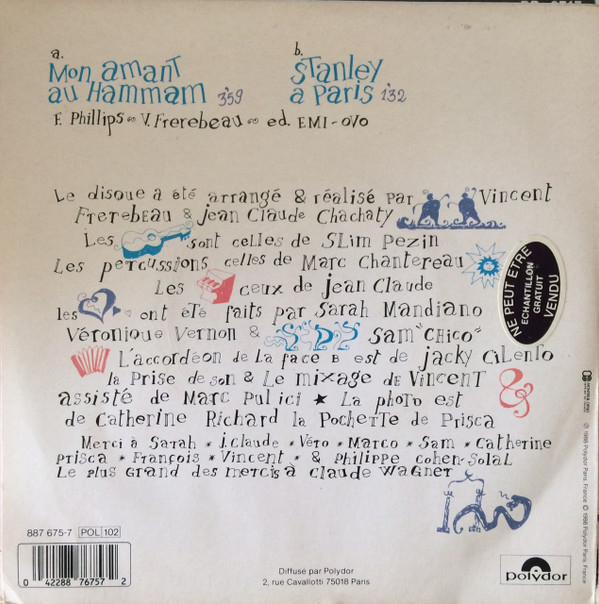 a.
Mon amant
au Hammam 3'59
b.
Stanley
a Paris 1'32
F. Phillips ∞ V. Frerebeau ∞ ed. EMI - OVO
Le disque a été arrangé & réalisé par Vincent
Frerebeau & Jean Claude Chachaty
Les sont celles de Slim Pezin
Les percussions celles de Marc Chantereau
Les ceux de Jean Claude
les ont été faits par Sarah Mandiano
Véronique Vernon & Sam "CHICO"
L'accordéon de la face B est de Jacky Cilento
la Prise de son & Le mixage de Vincent
assisté de Marc Pulici ★ La photo est
de Catherine Richard la Pochette de Prisca
Merci à Sarah * J. Claude * Véro * Marco * Sam * Catherine
Prisca * François * Vincent * & Philippe Cohen-Solal
Le plus grand des mercis à Claude Wagner
NE PEUT ÊTRE
ECHANTILLON
GRATUIT
VENDU
℗ 1988 Polydor Paris, France © 1988 Polydor Paris, France
887 675-7 POL 102
0 42288 76757 2
Diffusé par Polydor
2, rue Cavallotti 75018 Paris
polydor